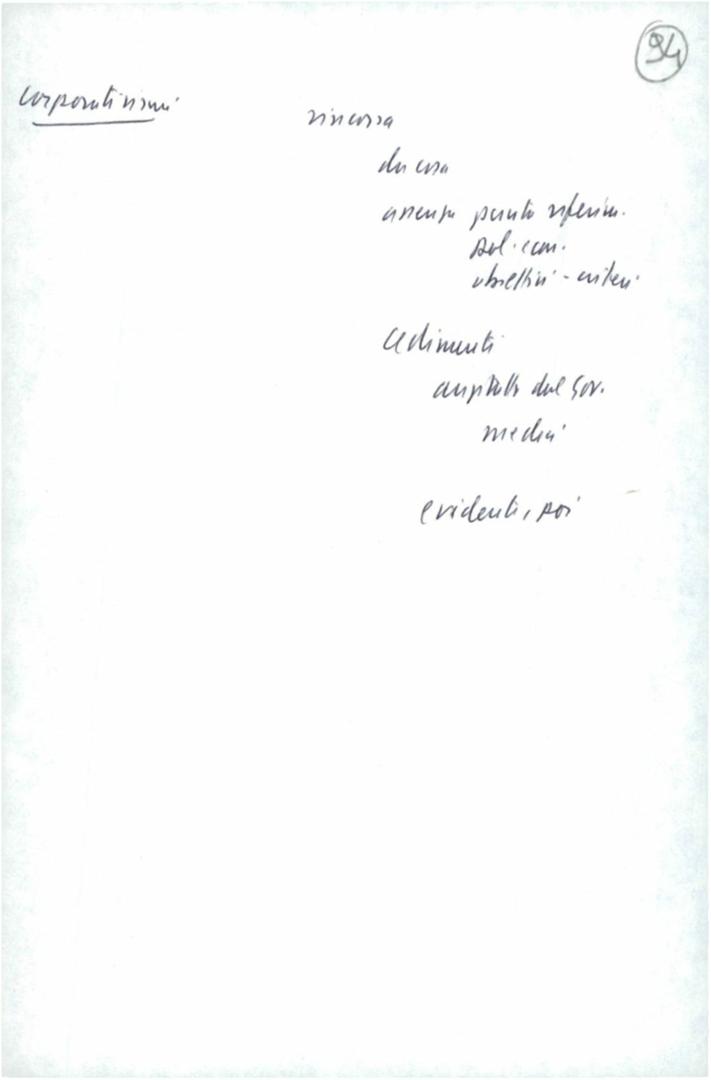 94
corporativismi
rincorsa
da cosa
assenza punto riferim.
pol. ec.
obiettivi - criteri
cedimenti
dal Gov.
medici
evidenti, poi